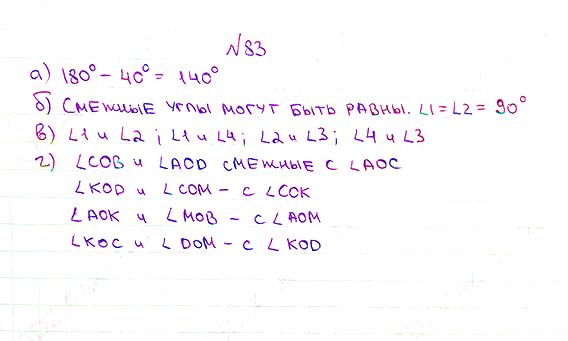 №83
а) 180° - 40° = 140°
б) Смежные углы могут быть равны. ∠1 = ∠2 = 90°
в) ∠1 и ∠2; ∠1 и ∠4; ∠2 и ∠3; ∠4 и ∠3
г) ∠COB и ∠AOD смежные с ∠AOC
∠KOD и ∠COM - с ∠COK
∠AOK и ∠MOB - с ∠AOM
∠KOC и ∠DOM - с ∠KOD